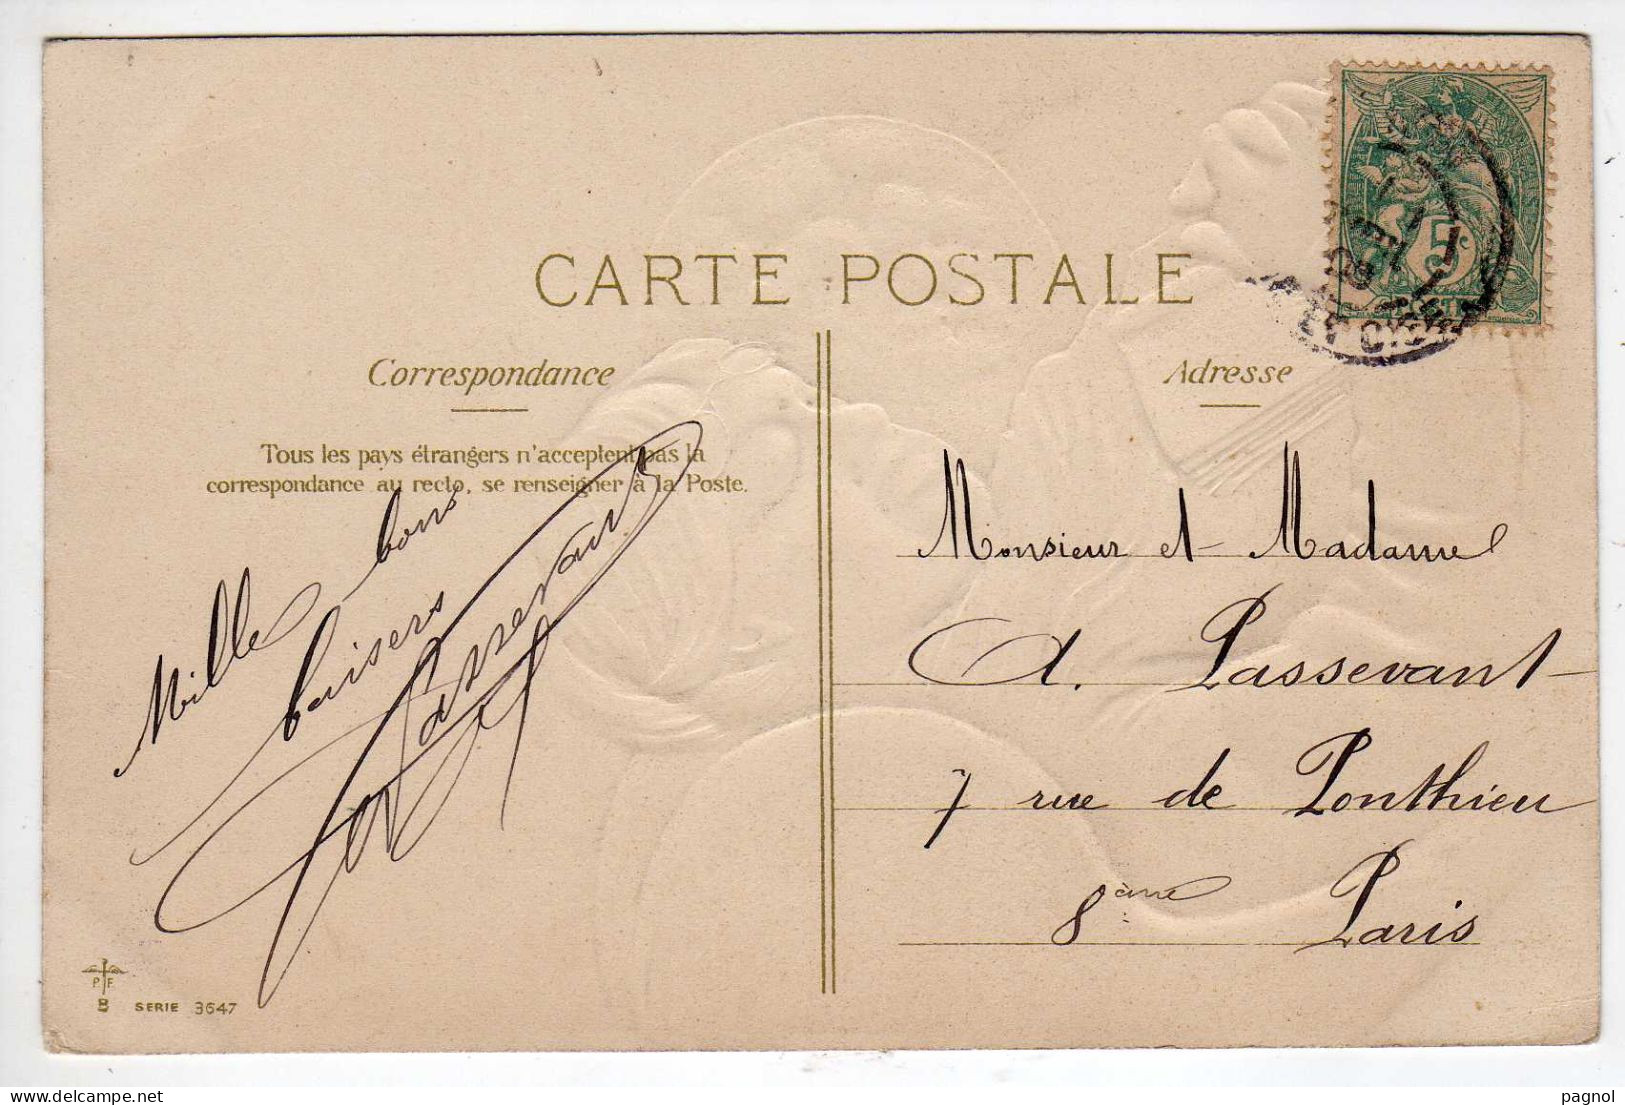 CARTE POSTALE
Correspondance
Tous les pays étrangers n'acceptent pas la
correspondance au recto, se renseigner à la Poste.
Mille bons
baisers
Passevant
PF
B SERIE 3647
5c
Adresse
Monsieur et Madame
A. Passevant
7 rue de Ponthieu
8ème Paris
pagnol